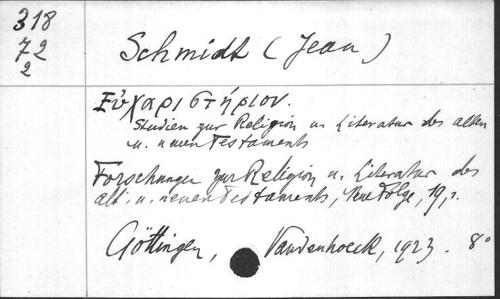 318
72
2
Schmidt (Jean)
Εὐχαριστήριον.
Studien zur Religion u. Literatur des alten
u. neuen Testaments
Forschungen zur Religion u. Literatur des
alt. u. neuen Testaments, Neue Folge, 19,1.
Göttingen, Vandenhoeck, 1923. 8°